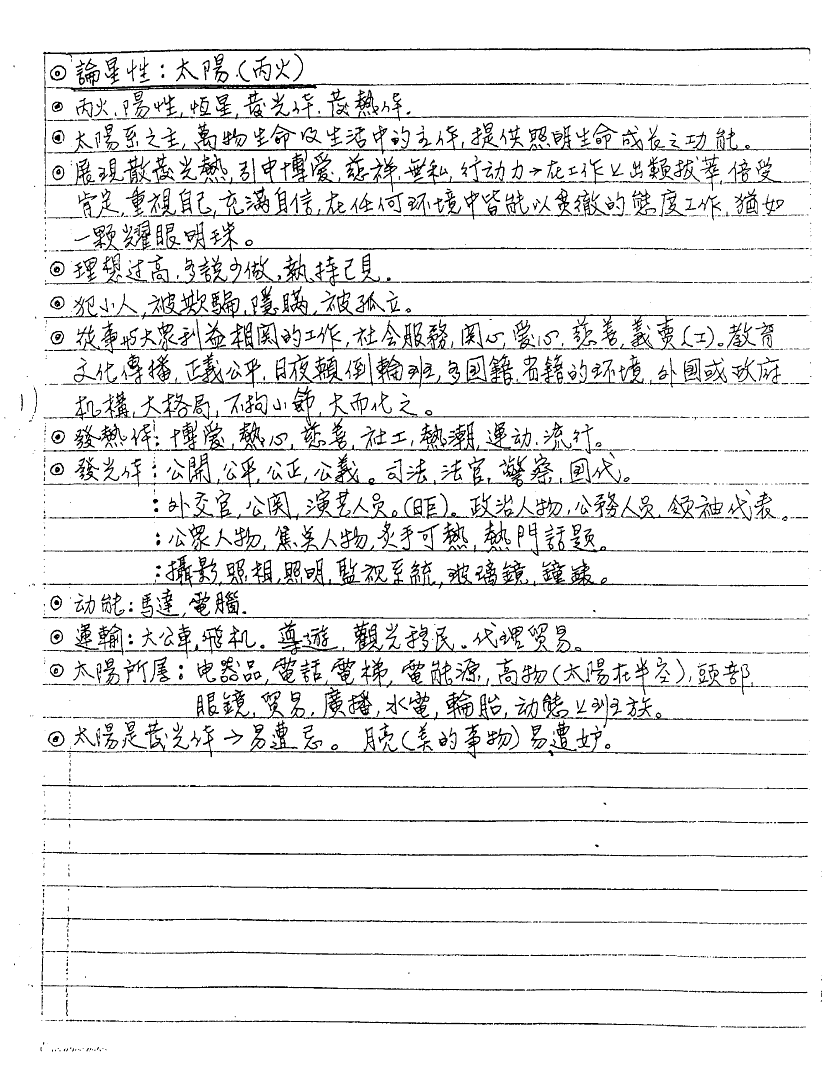 ⊙ 論星性：太陽.(丙火)
⊙ 丙火,陽性,恆星,發光体.發熱体.
⊙ 太陽系之主,萬物生命及生活中的主体,提供照明生命成長之功能。
⊙ 展現散發光熱,引申博愛,慈祥,無私,行动力→在工作上出類拔萃,倍受
肯定,重視自己,充滿自信,在任何环境中皆能以貫徹的態度工作,猶如
一顆耀眼明珠。
⊙ 理想过高,多說少做,執持己見.
⊙ 犯小人,被欺騙,隱瞞,被孤立。
⊙ 從事与大眾利益相関的工作,社会服務,関心,愛心,慈善,義賣(工)。教育
文化傳播,正義公平,日夜顛倒輪班,多国籍,省籍的环境,外国或政府
机構,大格局,不拘小節,大而化之。
⊙ 發熱体：博愛,熱心,慈善,社工,熱潮,運动.流行。
⊙ 發光体：公開,公平,公正,公義。司法,法官,警察,国代。
：外交官,公関,演艺人员。(旺)。政治人物,公務人员,領袖代表。
：公眾人物,焦点人物,炙手可熱,熱門話題。
：攝影,照相,照明,監視系統,玻璃鏡,鐘錶。
⊙ 动能：馬達,電腦.
⊙ 運輸：大公車,飛机。導遊,觀光移民。代理貿易。
⊙ 太陽所屬：电器品,電話,電梯,電能源,高物(太陽在半空),頭部,
眼鏡,貿易,廣播,水電,輪胎,动態上班族。
⊙ 太陽是發光体→易遭忌。月亮(美的事物)易遭妒。